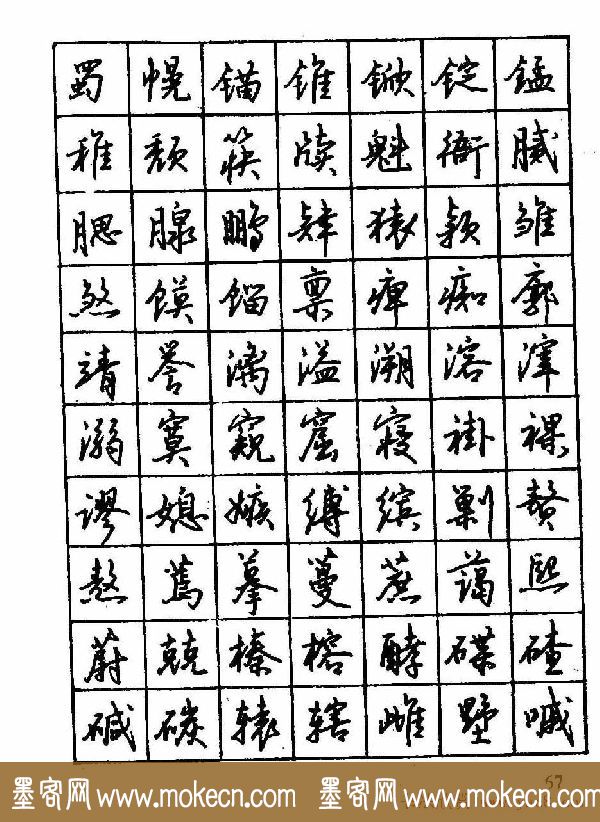 蜀幌锚锥锨锭锰
稚颓筷牍魁衙腻
腮腺鹏肄猿颖雏
煞馍馏禀痹痴廓
靖誉漓溢溯溶滓
溺寞窥窟寝褂裸
谬媳嫉缚缤剿赘
熬蔫摹蔓蔗蔼熙
蔚兢榛榕酵碟碴
碱碳辕辖雌墅嘁
57
墨客网 www.mokecn.com 墨客网 www.mokecn.com